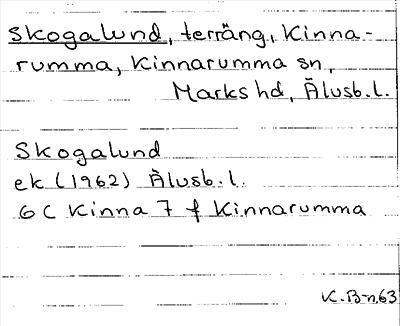 Skogalund, terräng, Kinna-
rumma, Kinnarumma sn,
Marks hd, Älvsb. l.
Skogalund
ek (1962) Älvsb. l.
6C Kinna 7 f Kinnarumma
K. B-n 63